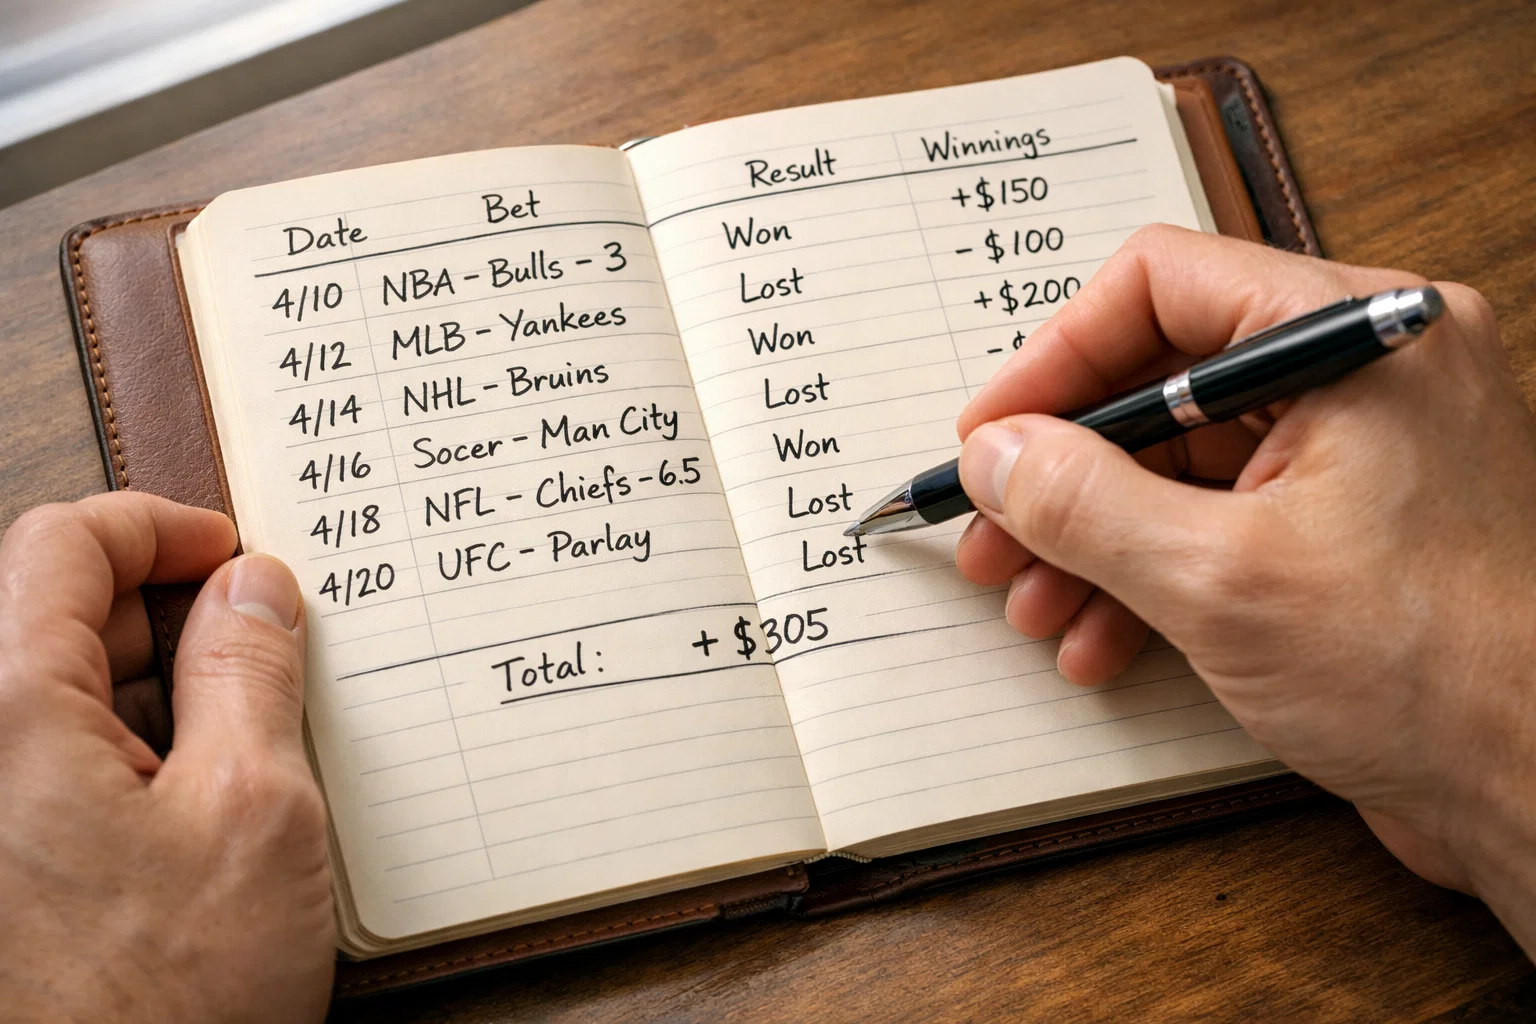 Date Bet Result Winnings
4/10 NBA - Bulls - 3 Won +$150
4/12 MLB - Yankees Lost - $100
4/14 NHL - Bruins Won +$200
4/16 Socer - Man City Lost - $
4/18 NFL - Chiefs - 6.5 Won
4/20 UFC - Parlay Lost
Lost
Total: + $305